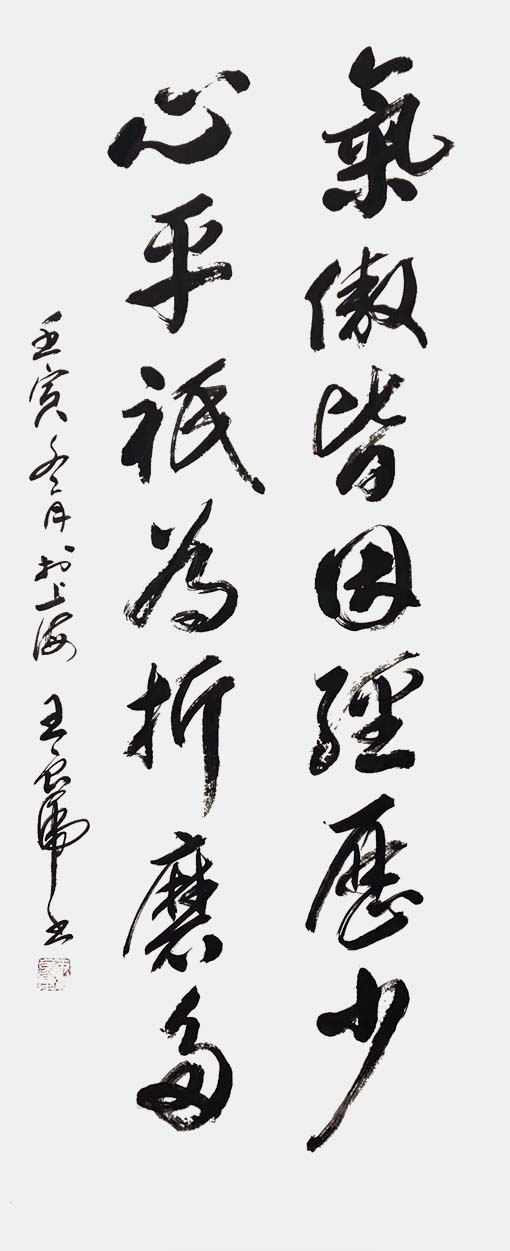 氣傲皆因經歷少
心平祇為折磨多
壬寅冬月於上海 王